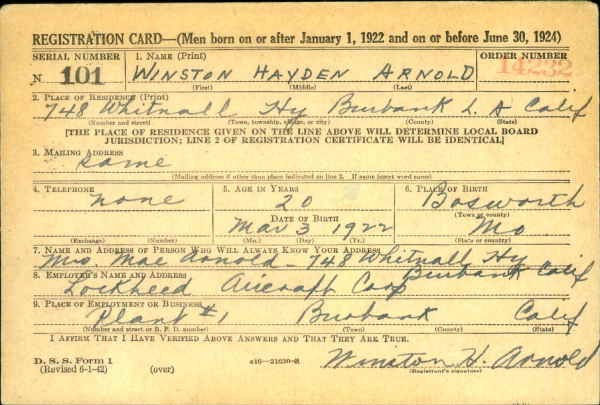 REGISTRATION CARD—(Men born on or after January 1, 1922 and on or before June 30, 1924)
SERIAL NUMBER 1. NAME (Print) ORDER NUMBER
N 101 WINSTON HAYDEN ARNOLD 14232
(First) (Middle) (Last)
2. PLACE OF RESIDENCE (Print)
748 Whitnall Hy Burbank L. A Calif
(Number and street) (Town, township, village, or city) (County) (State)
[THE PLACE OF RESIDENCE GIVEN ON THE LINE ABOVE WILL DETERMINE LOCAL BOARD
JURISDICTION; LINE 2 OF REGISTRATION CERTIFICATE WILL BE IDENTICAL]
3. MAILING ADDRESS
Same
(Mailing address if other than place indicated on line 2. If same insert word same)
4. TELEPHONE 5. AGE IN YEARS 6. PLACE OF BIRTH
none 20 Bosworth
DATE OF BIRTH (Town or county)
Mar 3 1922 Mo
(Exchange) (Number) (Mo.) (Day) (Yr.) (State or country)
7. NAME AND ADDRESS OF PERSON WHO WILL ALWAYS KNOW YOUR ADDRESS
Mrs. Mae Arnold - 748 Whitnall Hy
Burbank Calif
8. EMPLOYER'S NAME AND ADDRESS
Lockheed Aircraft Corp
9. PLACE OF EMPLOYMENT OR BUSINESS
Plant #1 Burbank Calif
(Number and street or R. F. D. number) (Town) (County) (State)
I AFFIRM THAT I HAVE VERIFIED ABOVE ANSWERS AND THAT THEY ARE TRUE.
D. S. S. Form 1 Winston H. Arnold
(Revised 6-1-42) (over) (Registrant's signature)